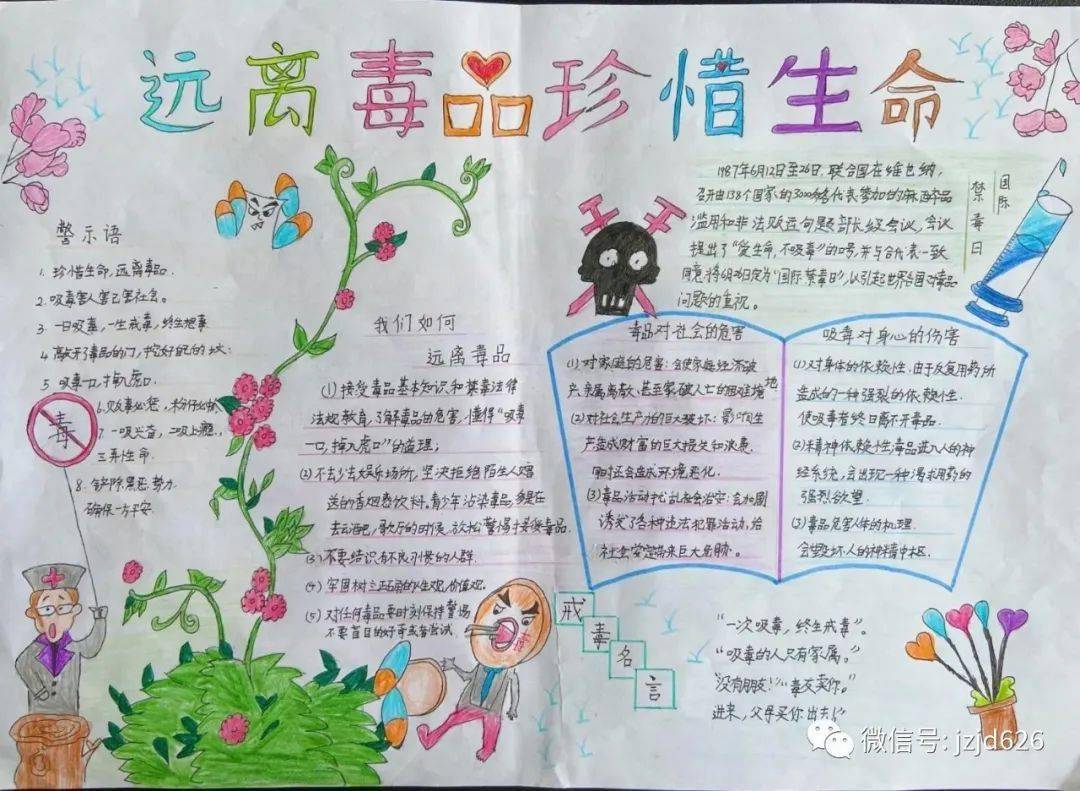 远离毒品珍惜生命
警示语
1. 珍惜生命,远离毒品.
2. 吸毒害人害己害社会。
3. 一日吸毒,一生戒毒,终生想毒
4. 敲开了毒品的门,挖好自己的坟;
5. 吸毒一口,掉入虎口.
毒
7. 一吸兴奋,二吸上瘾.,
三弄性命.
8. 铲除黑恶势力
确保一方平安
我们如何
远离毒品
(1) 接受毒品基本知识和禁毒法律
法规教育,了解毒品的危害,懂得“吸毒
一口,掉入虎口”的道理;
(2) 不去少去娱乐场所,坚决拒绝陌生人赠
送的香烟卷饮料。青少年沾染毒品,多是在
去酒吧,歌厅的时候,放松警惕才染毒品.
(3) 不要结识有不良习惯的人群.
(4) 牢固树立正确的人生观,价值观.
(5) 对任何毒品要时刻保持警惕,
不要盲目的好奇或者尝试
国际
禁毒日
1987年6月12日至26日,联合国在维也纳,
召开由138个国家的3000多名代表参加的麻醉品
滥用和非法贩运问题部长级会议,会议
提出了“爱生命,不吸毒”的口号,并与会代表一致
同意将6月26日定为“国际禁毒日”,以引起世界各国对毒品
问题的重视。
毒品对社会的危害
(1) 对家庭的危害:会使家庭经济破
产,亲属离散,甚至家破人亡的困难境地
(2) 对社会生产力的巨大破坏:影响生
产造成财富的巨大损失和浪费.
同时还会造成环境恶化.
(3) 毒品活动扰乱社会治安:会加剧
诱发了各种违法犯罪活动,给
社会安定带来巨大危胁。
吸毒对身心的伤害
(1) 对身体的依赖性,由于反复用药所
造成的一种强烈的依赖性.
使吸毒者终日离不开毒品.
(2) 精神依赖性,毒品进入人的神
经系统,会出现一种渴求用药的
强烈欲望.
(3) 毒品危害人体的机理.
会毁坏人的神精中枢.
戒毒名言
“一次吸毒,终生戒毒”。
“吸毒的人只有家属。”
“没有朋友!”“毒友卖你。”
进来,父母买你出去!”
微信号: jzjd626